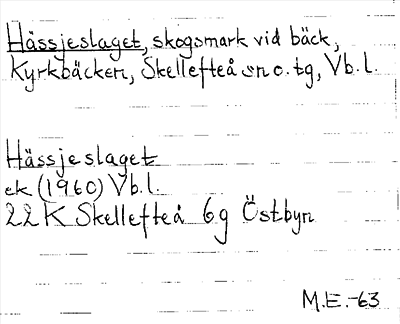 Hässjeslaget, skogsmark vid bäck,
Kyrkbäcken, Skellefteå sn o. tg, Vb. l.
Hässjeslaget
ek (1960) Vb. l.
22 K Skellefteå 6g Östbyn
M.E.-63